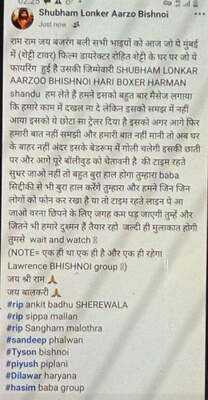 02:25
Shubham Lonker Aarzo Bishnoi
Just now
राम राम जय बजरंग बली सभी भाइयों को आज जो ये मुंबई
में (शेट्टी टावर) फिल्म डायरेक्टर रोहित शेट्टी के घर पर जो ये
फायरिंग हुई है उसकी जिम्मेवारी SHUBHAM LONKAR
AARZOO BHISHNOI HARI BOXER HARMAN
shandu हम लेते हैं हमने इसको बहुत बार मैसेज लगाया
कि हमारे काम में दखल ना दे लेकिन इसको समझ में नहीं
आया इसको ये छोटा सा ट्रेलर दिया है इसको अगर आगे फिर
हमारी बात नहीं समझी और हमारी बात नहीं मानी तो अब घर
के बाहर नहीं अंदर इसके बेडरूम में गोली चलेगी इसकी छाती
पर और आगे पूरे बॉलीवुड को चेतावनी है की टाइम रहते
सुधर जाओ नहीं तो बहुत बुरा हाल होगा तुम्हारा baba
सिद्दीकी से भी बुरा हाल करेंगे तुम्हारा और हमने जिन जिन
लोगों को फोन कर रखा है या तो टाइम रहते लाइन पे आ
जाओ वरना छिपने के लिए जगह कम पड़ जाएगी तुम्हें और
जितने भी हमारे दुश्मन हैं तैयार रहो जल्दी ही मुलाकात होगी
तुमसे wait and watch
(NOTE= एक ही था एक ही है और एक ही रहेगा
Lawrence BHISHNOI group
जय श्री राम 🙏
जय बालकरी 🙏
#rip ankit badhu SHEREWALA
#rip sippa mallan
#rip Sangham malothra
#sandeep phalwan
#Tyson bishnoi
#piyush piplani
#Dilawar haryana
#hasim baba group